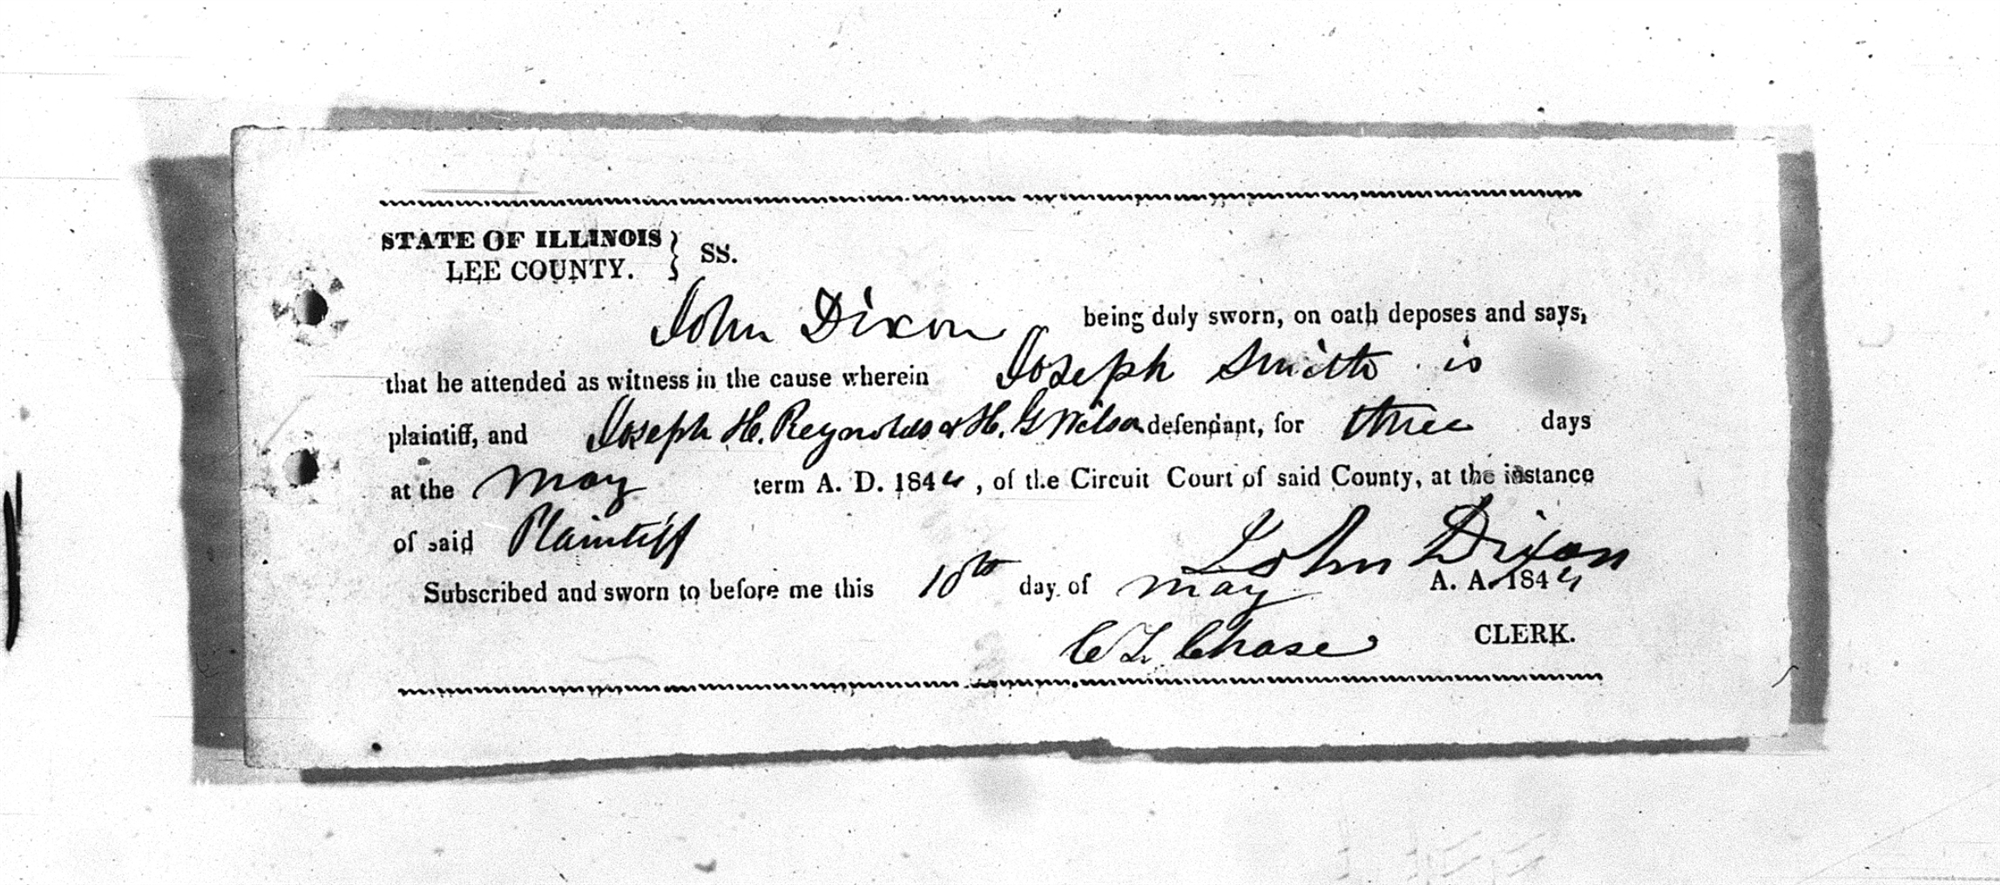 STATE OF ILLINOIS } SS.
LEE COUNTY.
John Dixon being duly sworn, on oath deposes and says,
that he attended as witness in the cause wherein Joseph Smith is
plaintiff, and Joseph H. Reynolds & H. G Wilson defendant, for three days
at the May term A. D. 1844, of the Circuit Court of said County, at the instance
of said Plaintiff
John Dixon
Subscribed and sworn to before me this 10th day of May A. A. 1844
C T. Chase CLERK.